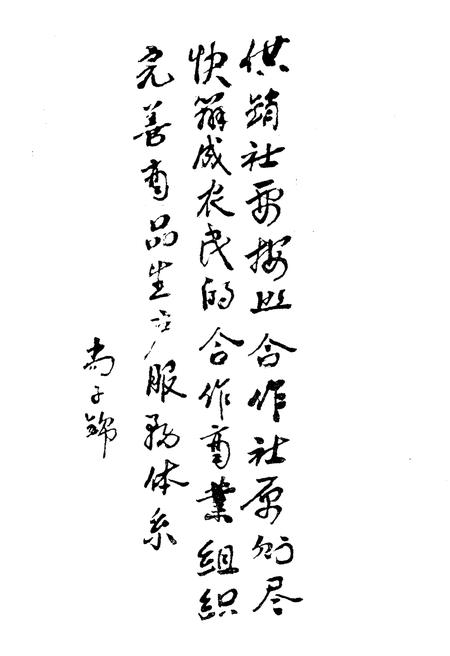 供销社要按照合作社原则尽
快办成农民的合作商业组织
完善商品生产服务体系
尚子锦